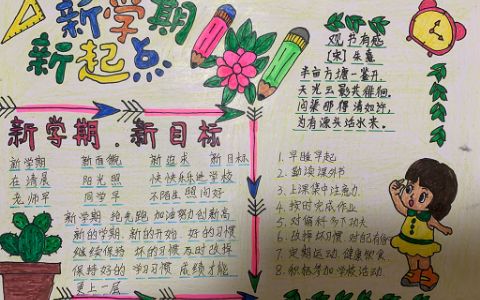 新学期
新起点
观书有感
[宋]朱熹
半亩方塘一鉴开,
天光云影共徘徊。
问渠那得清如许,
为有源头活水来。
新学期.新目标
新学期 新面貌 新起床 新目标
在清晨 阳光照 快快乐乐进学校
老师早 同学早 不陌生 照问好
新学期 他先跑 加油努力创新高
新的学期, 新的开始 好的习惯
继续保持 坏的习惯 及时改掉
保持好的 学习习惯 成绩才能
更上一层
1. 早睡早起
2. 勤读课外书
3. 上课集中注意力
4. 按时完成作业
5. 对偏科多下功夫
6. 改掉坏习惯
7. 定期运动, 健康饮食
8. 积极参加学校活动